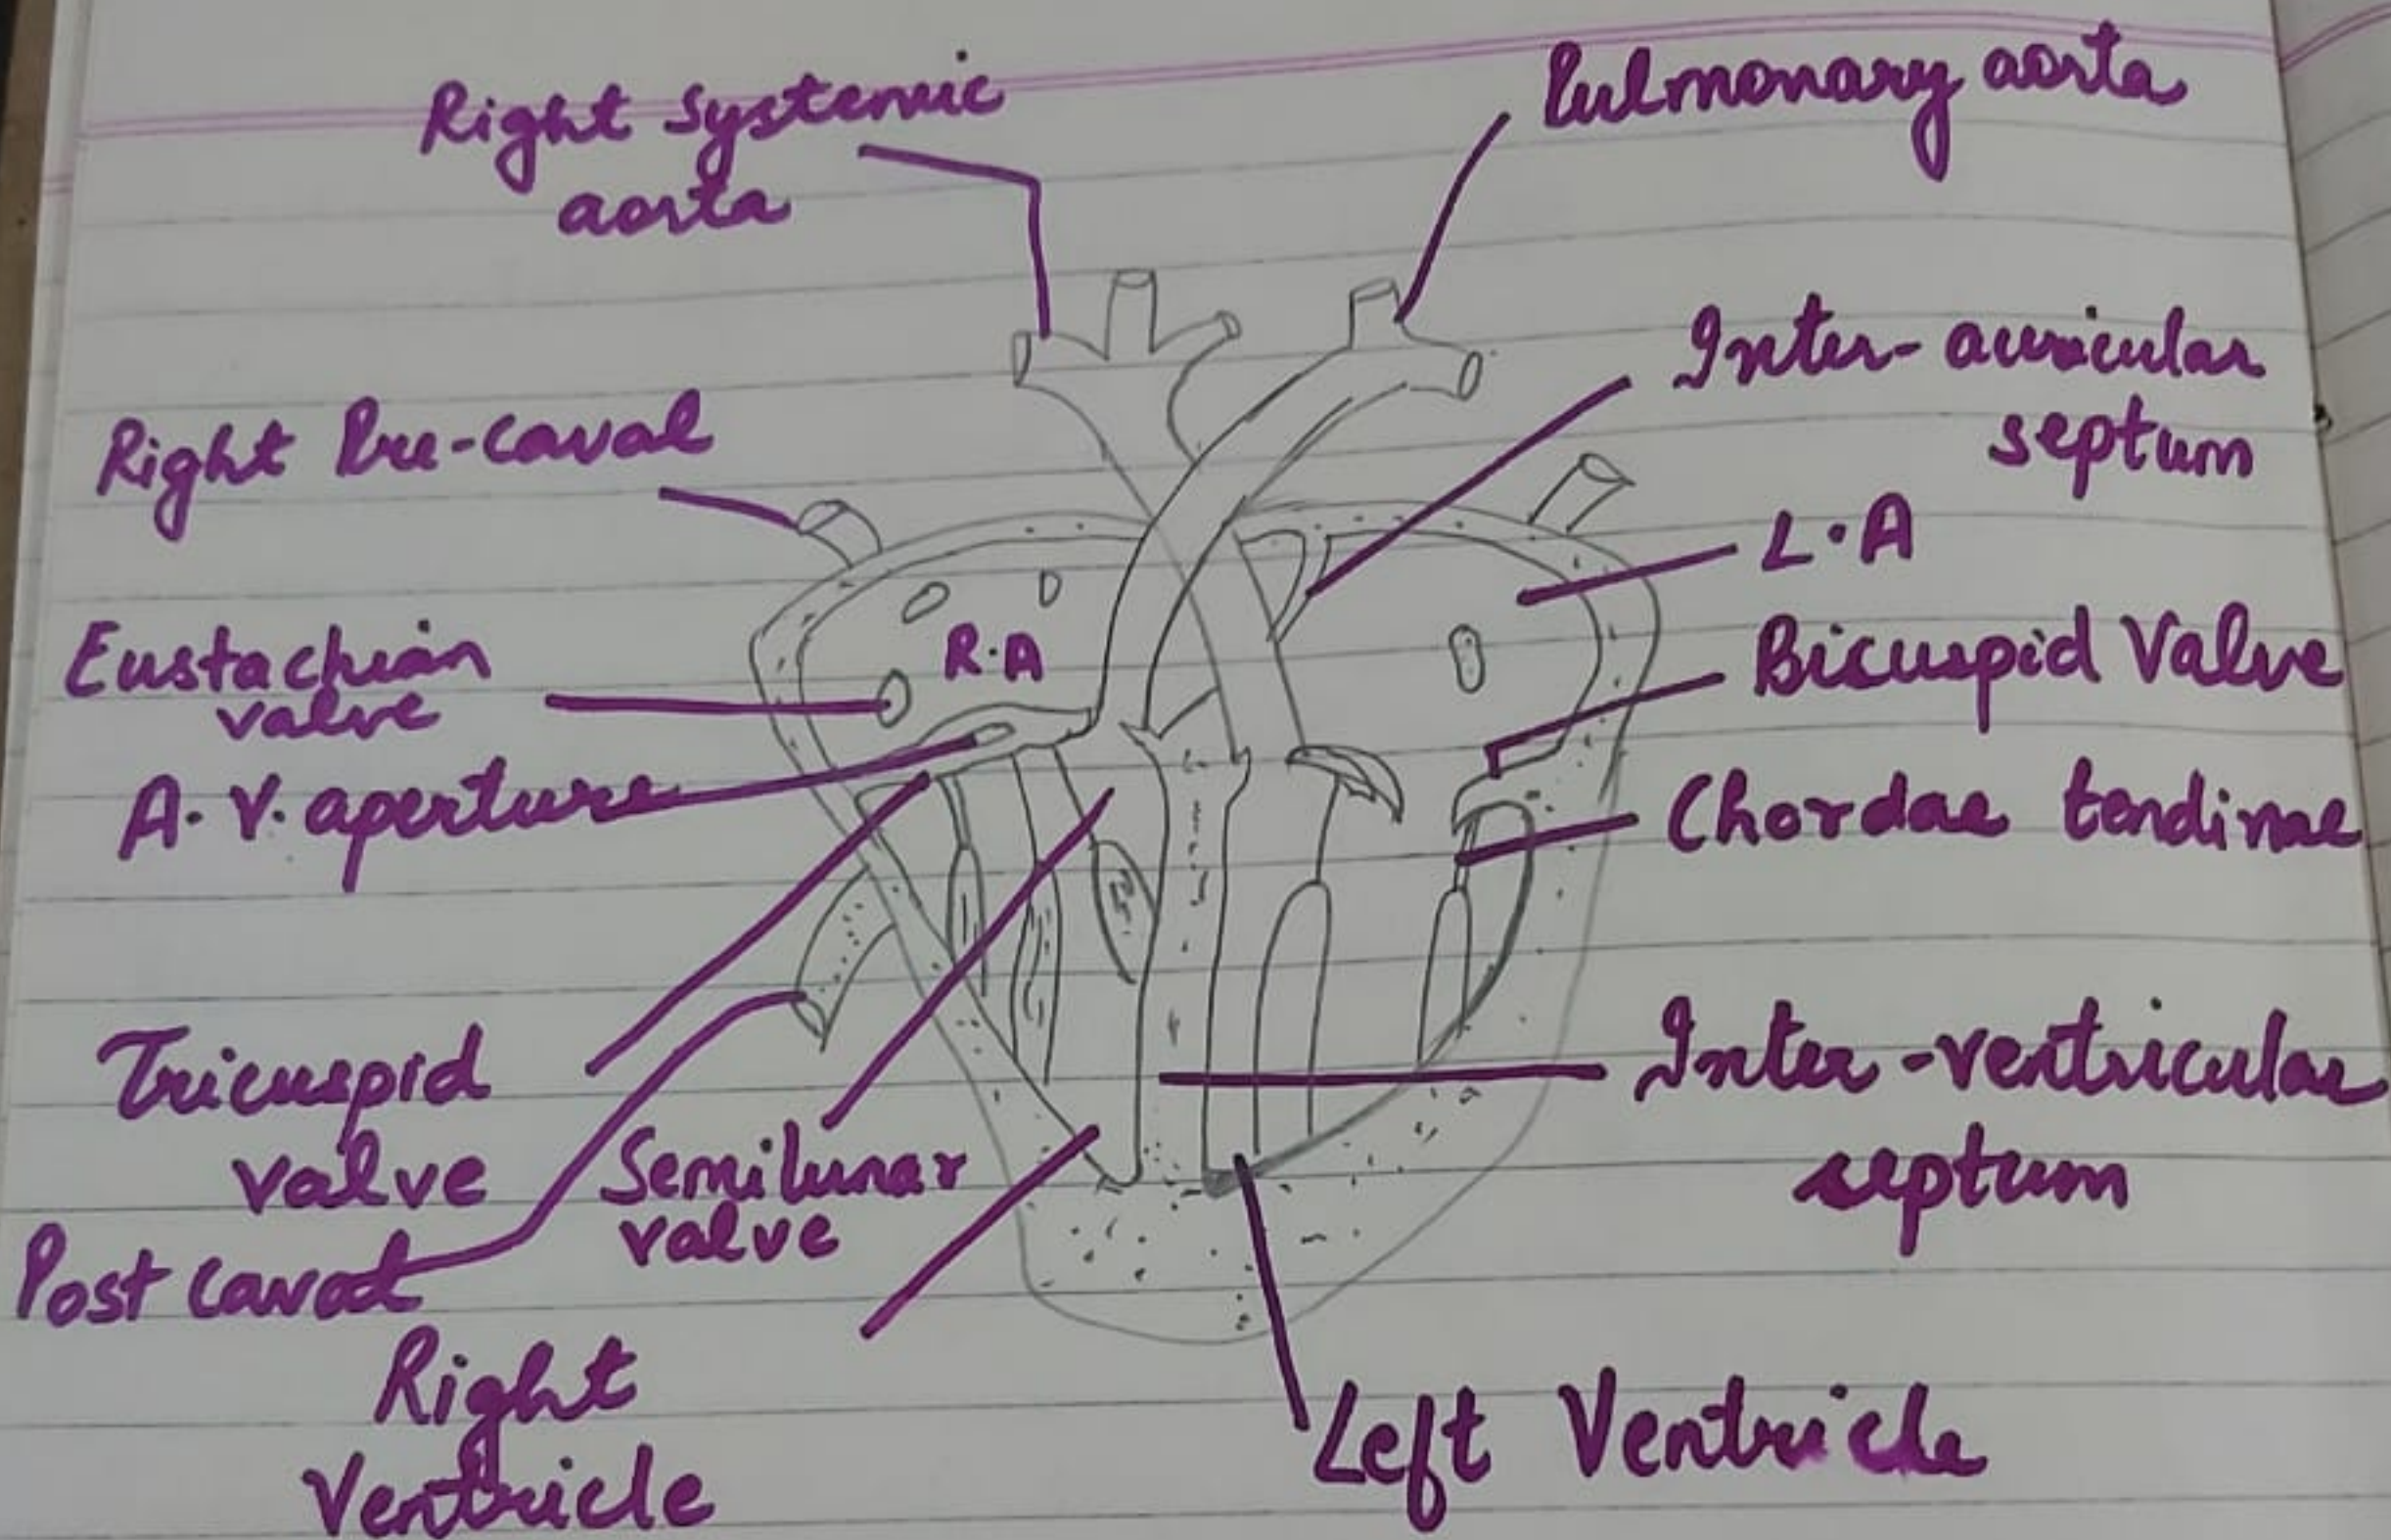 Right systemic
aorta
Pulmonary aorta
Inter-auricular
septum
Right Pre-caval
L.A
Eustachian
valve
R.A
Bicuspid Valve
A.V. aperture
Chordae tendinae
Tricuspid
valve
Semilunar
valve
Inter-ventricular
septum
Post caval
Right
Ventricle
Left Ventricle